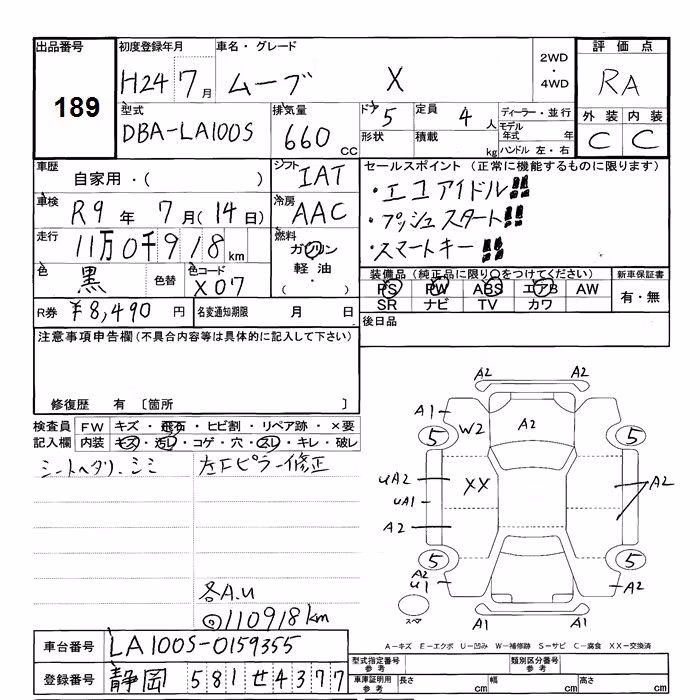 出品番号 初度登録年月 車名・グレード 2WD・4WD 評価点
189 H24 7月 ムーブ X RA
型式 排気量 ドア 定員 ディーラー・並行 外装 内装
DBA-LA100S 660cc 5 4人 モデル年式 年 C C
形状 積載 kg ハンドル 左・右
車歴 自家用・( ) シフト IAT セールスポイント (正常に機能するものに限ります)
・エコアイドル!!
車検 R9年 7月(14日) 冷房 AAC ・プッシュスタート!!
走行 11万0千918km 燃料 ガソリン ・スマートキー!!
軽油・( )
色 黒 色替 色コード X07 装備品 (純正品に限り○をつけてください) 新車保証書
PS PW ABS エアB AW 有・無
SR ナビ TV カワ
R券 ¥8,490円 名変通知期限 月 日 後日品
注意事項申告欄(不具合内容等は具体的に記入して下さい)
修復歴 有 〔箇所 〕
検査員記入欄 FW キズ・飛石・ヒビ割・リペア跡・×要
内装 キズ・汚レ・コゲ・穴・スレ・キレ・破レ
シートヘタリ、シミ 左Fピラー修正
各A.U
◎110918km
A2
A1 A2 A2
W2
5 5
UA2 XX A2
UA1
A2
5 5
A2
U1 A2
スペア A1 A1
A-キズ E-エクボ U-凹み W-補修跡 S-サビ C-腐食 XX-交換済
車台番号 LA100S-0159355
型式指定番号 参考 類別区分番号 参考
登録番号 静岡 581 せ 4377
車庫証明用 参考 長さ cm 幅 cm 高さ cm